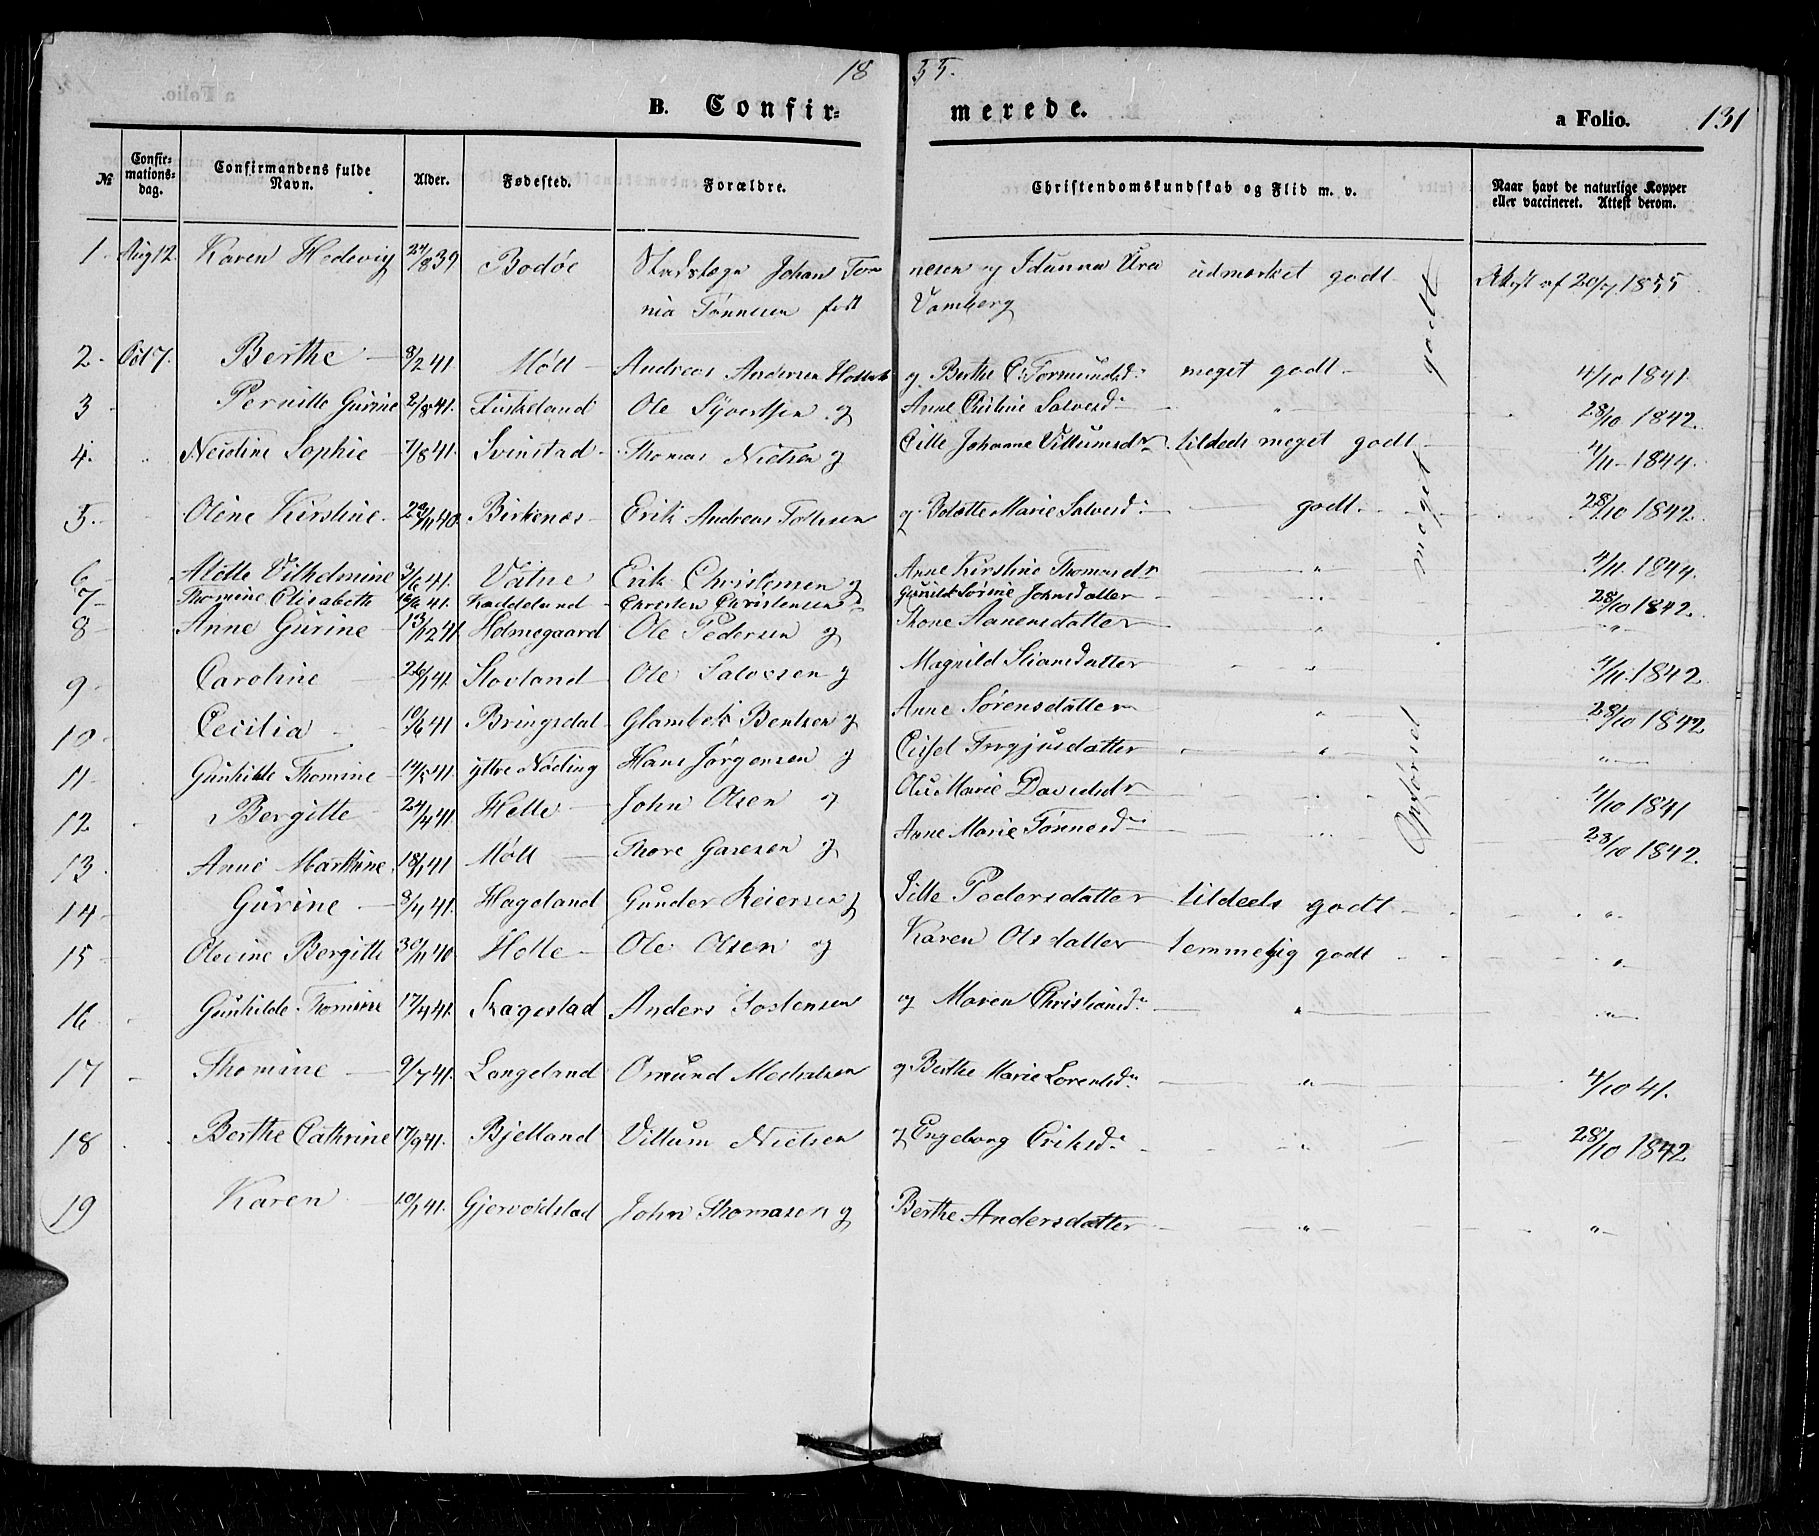 18 55.
B. Confirmerede. a Folio. 131
№ Confirmationsdag. Confirmandens fulde Navn. Alder. Fødested. Forældre. Christendomskundskab og Flid m. v. Naar havt de naturlige Kopper eller vaccineret. Attest derom.
1. Aug 12. Karen Hedevig 24/8 39 Bodøe Johan nesen og Idunna udmærket godt Attest af 20/7 1855
Tønnesen født Vamberg
2. Oct 7. Berthe 8/2 41 Møll Andreas Andersen og Berthe Tormundsd. meget godt 4/10 1841.
3 Pernille Gurine 2/8 41. Fuskeland Ole Syvertsen og Anne Salvesd. " 28/10 1842.
4. Sophie 7/8 41. Svinstad Thomas Nielsen og Johanne Villumsdr tildeels meget godt 4/11 1844.
5. Oline Kirstine. 29/11 40. Birkenæs Erik Andreas og Marie Salvesd. godt. 28/10 1842.
6 Vilhelmine 3/6 41. Vatne Erik Christensen og Anne Kirstine Thomasdr " 4/11. 1844.
7 Thomine Elisabeth 41. Christen Christensen Gunild Sørine Johnsdatter " 28/10 1842.
8 Anne Gurine 13/12 41 Holmegaard Ole Pedersen og Thone Aanensdatter " "
9 Caroline 26/1 41 Stovland Ole Salvesen og Magnild Stiansdatter " 4/11. 1842
10. Cecilia 10/6 41 Bringsdal Bentsen og Anne Sørensdatter " 28/10 1842
11 Gunhilde Thomine 14/5 41. ytre Nøding Hans Jørgensen og Tergjusdatter " "
12 Bergitte 24/4 41. Helle John Olsen og Marie Davidsdr " 4/10 1841
13 Anne Marthine 18/1 41 Møll Thore og Anne Marie Tønnesd. " 28/10 1842.
14 Gurine 8/4 41. Hageland Gunder Reiersen og Sille Pedersdatter tildeels godt "
15 Olevine Bergitte 30/11 40 Holte Ole Olsen og Karen Olsdatter temmelig godt "
16 Gunhilde Thomine 17/4 41. Skagestad Anders Tostensen og Maren Christiansd. " "
17 Thomine 9/7 41. Langeland Omund og Berthe Marie Lorentsd. " 4/10 41.
18 Berthe Cathrine 17/9 41. Bjelland Villum Nielsen og Engeborg Eriksd. " 28/10 1842
19 Karen 10/1 41. Gjervoldstad John Thomasen og Berthe Andersdatter " "
Opførsel meget godt